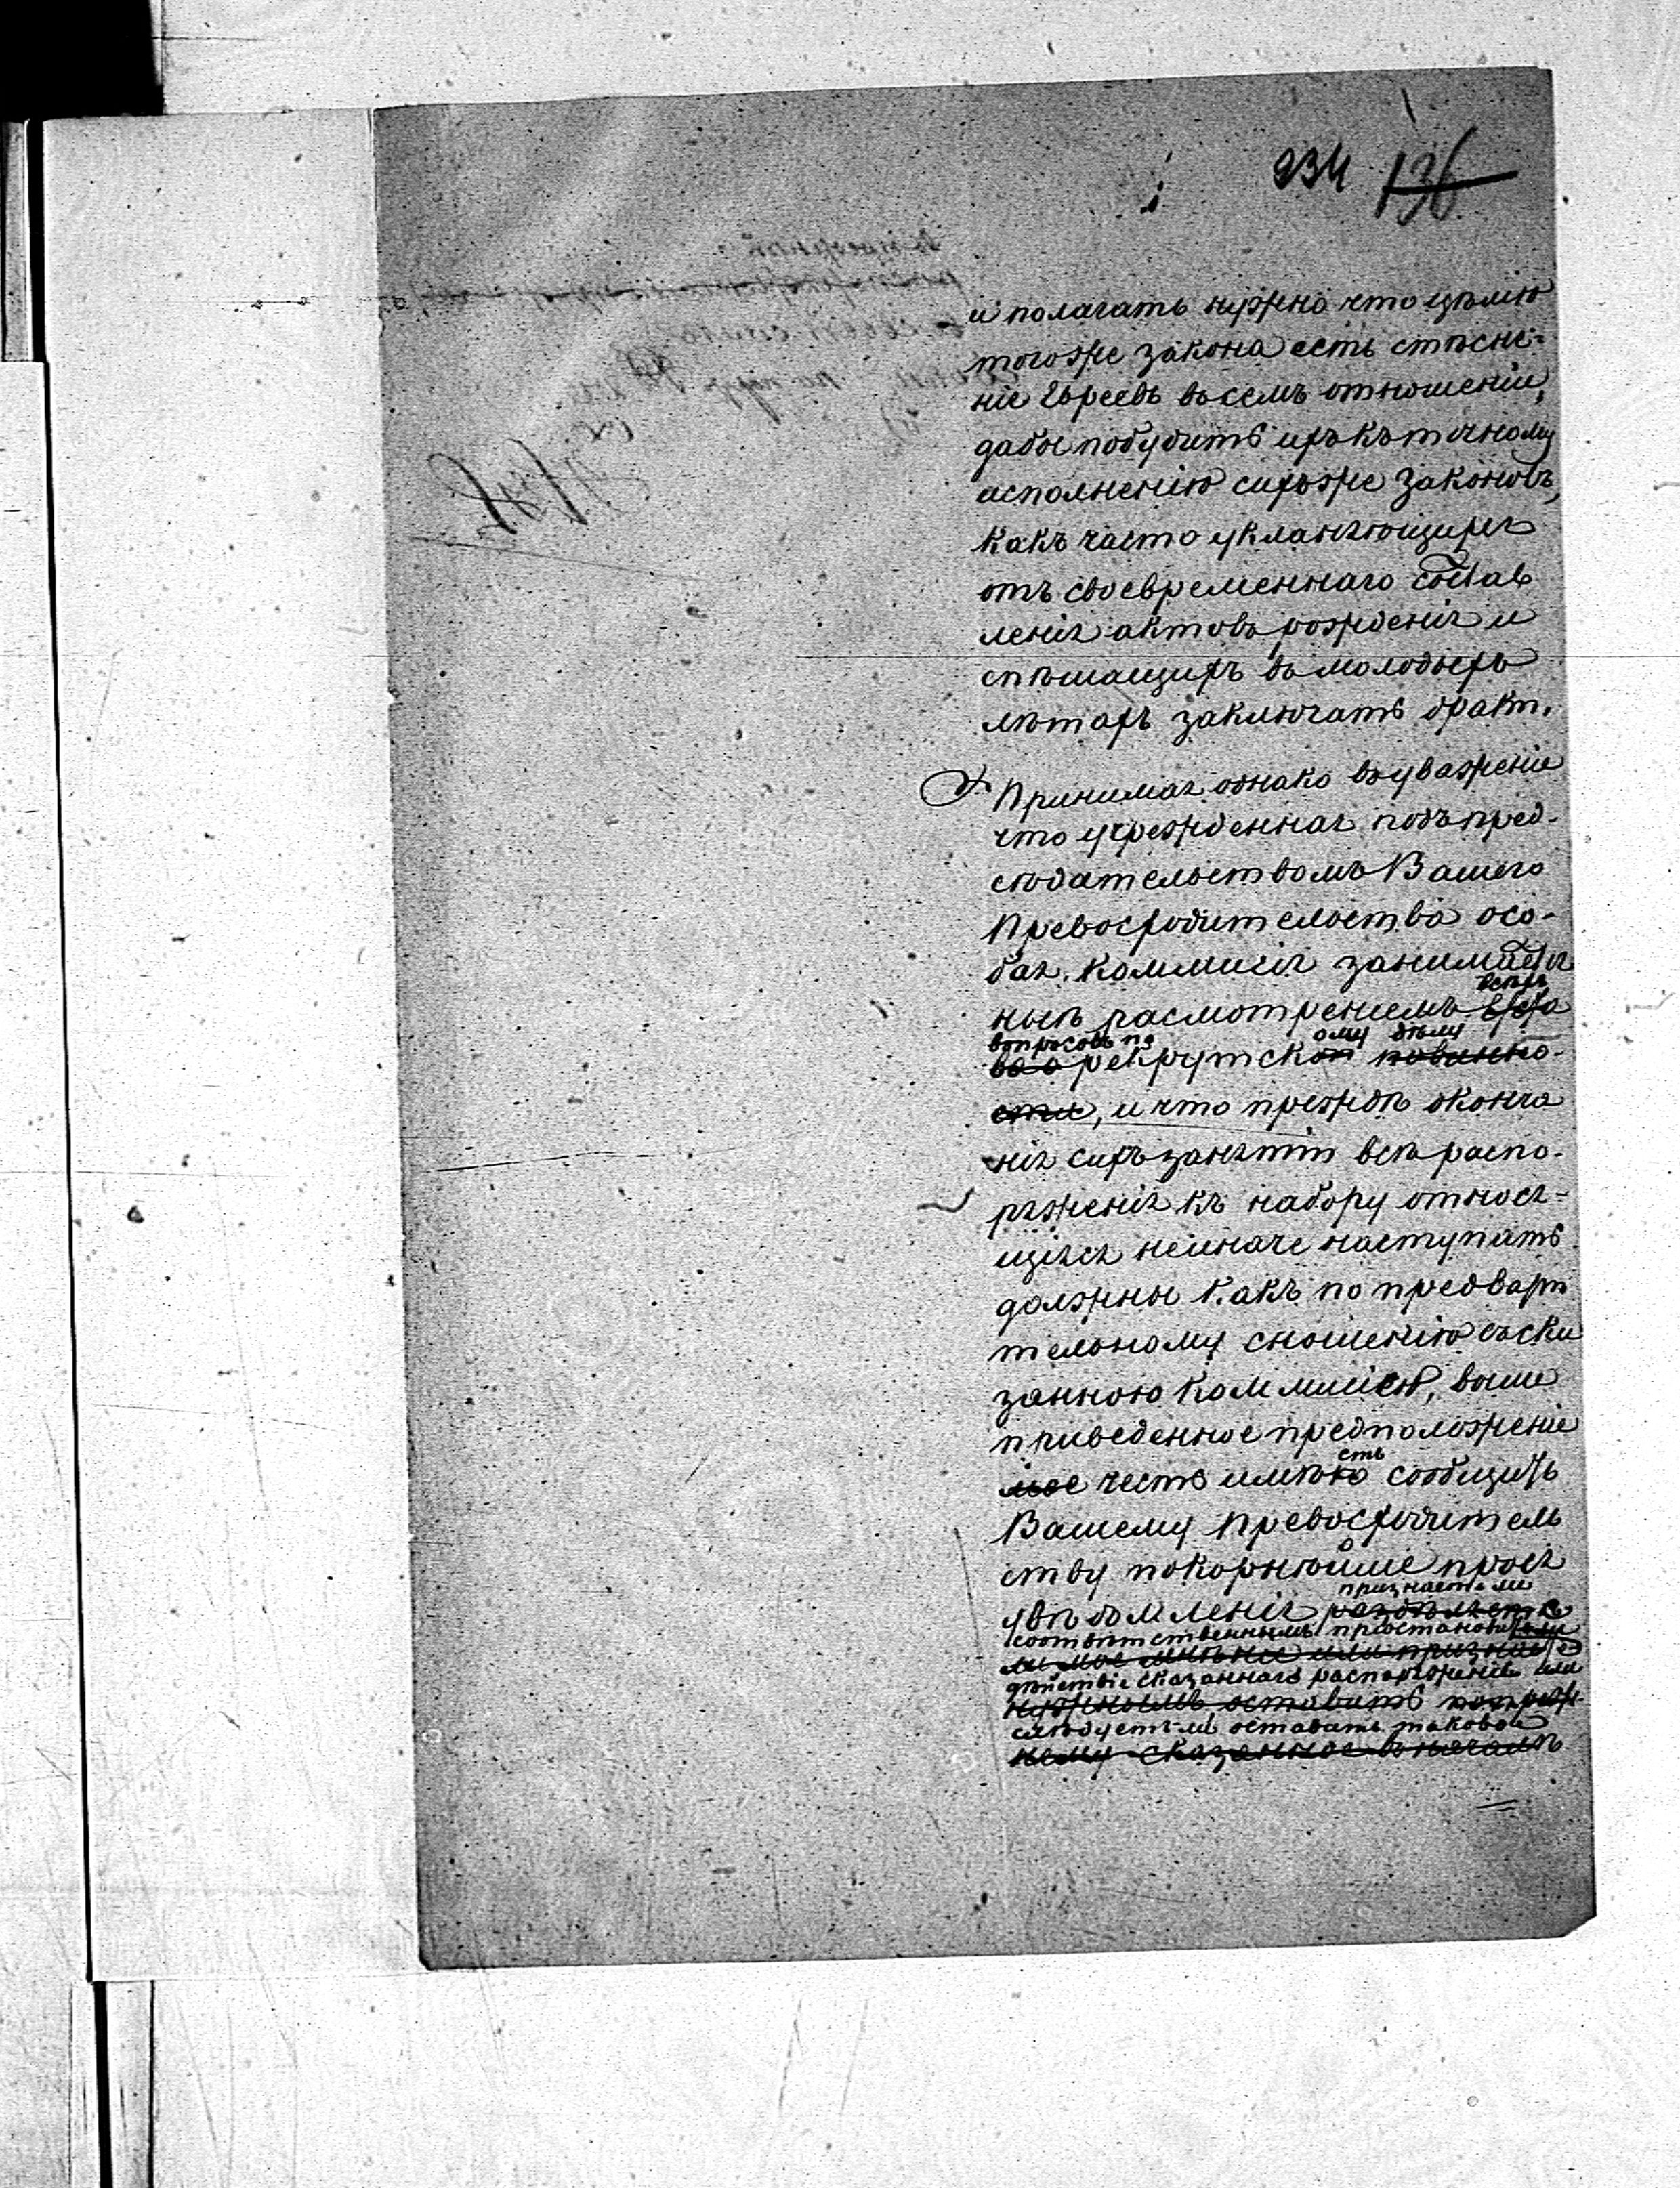 234 136
и полагать нужно что целію
тогоже закона есть стѣсне-
ніе Евреевъ въ семъ отношеніи,
дабы побудить ихъ къ точному
исполненію сихъже законовъ,
какъ часто уклоняющихся
отъ своевременнаго состав
ленія актовъ рожденія и
спѣшащихъ въ молодыхъ
лѣтахъ заключать бракъ.
Принимая однако въ уваженіе
что учрежденная подъ пред-
сѣдательствомъ Вашего
Превосходительства осо-
бая Коммисія занимается
нынѣ расмотреніемъ всѣхъ
вопросовъ по ому дѣлу
рекрутской повинно-
сти, и что прежде оконча
нія сихъ занятій всѣ распо-
ряженія къ набору относя-
щіяся неиначе наступать
должны какъ по предвари
тельному сношенію съ ска
занною Коммисіею, выше
приведенное предположеніе
сть
мое честь имѣю сообщить
Вашему Превосходитель
ству покорнѣйше прося
о
признаете ли
увѣдомленія раздѣляете
соотвѣтственнымъ пріостановить
ли мое мнѣніе или признаете
дѣйствіе сказаннаго распоряженія или
нужнымъ оставить попреж-
слѣдуетъ ли оставить таковое
нему сказанное въ началѣ